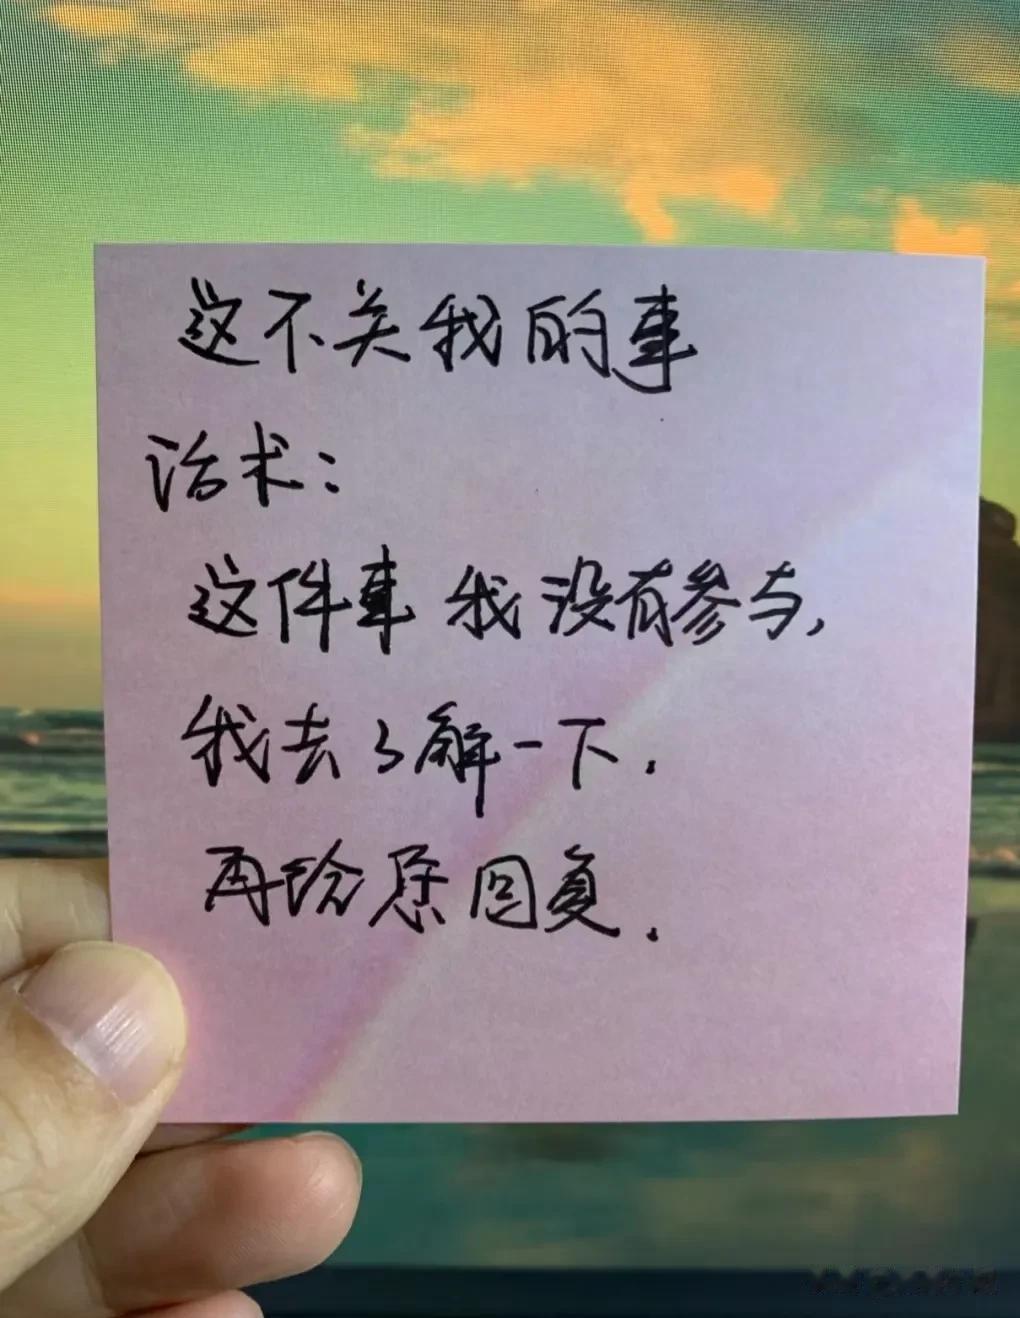 这不关我的事
话术：
这件事我没有参与，
我去了解一下.
再给您回复.